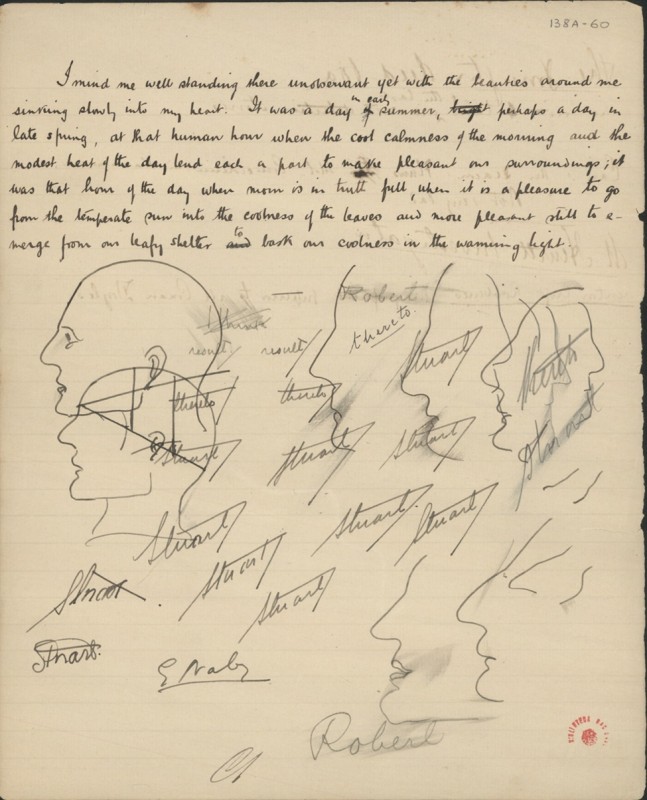 138A-60
I mind me well standing there unobservant yet with the beauties around me
sinking slowly into my heart. It was a day in early summer, bright perhaps a day in
late spring, at that human hour when the cool calmness of the morning and the
modest heat of the day lend each a part to make pleasant our surroundings; it
was that hour of the day when morn is in truth full, when it is a pleasure to go
from the temperate sun into the coolness of the leaves and more pleasant still to e-
merge from our leafy shelter and to bask our coolness in the warming light.
Robert
thereto
result result
Stuart
thereto thereto
thereto
Stuart Stuart Stuart
Stuart
Stuart Stuart Stuart
Stuart
Stuart
Stuart
Stuart
Robert